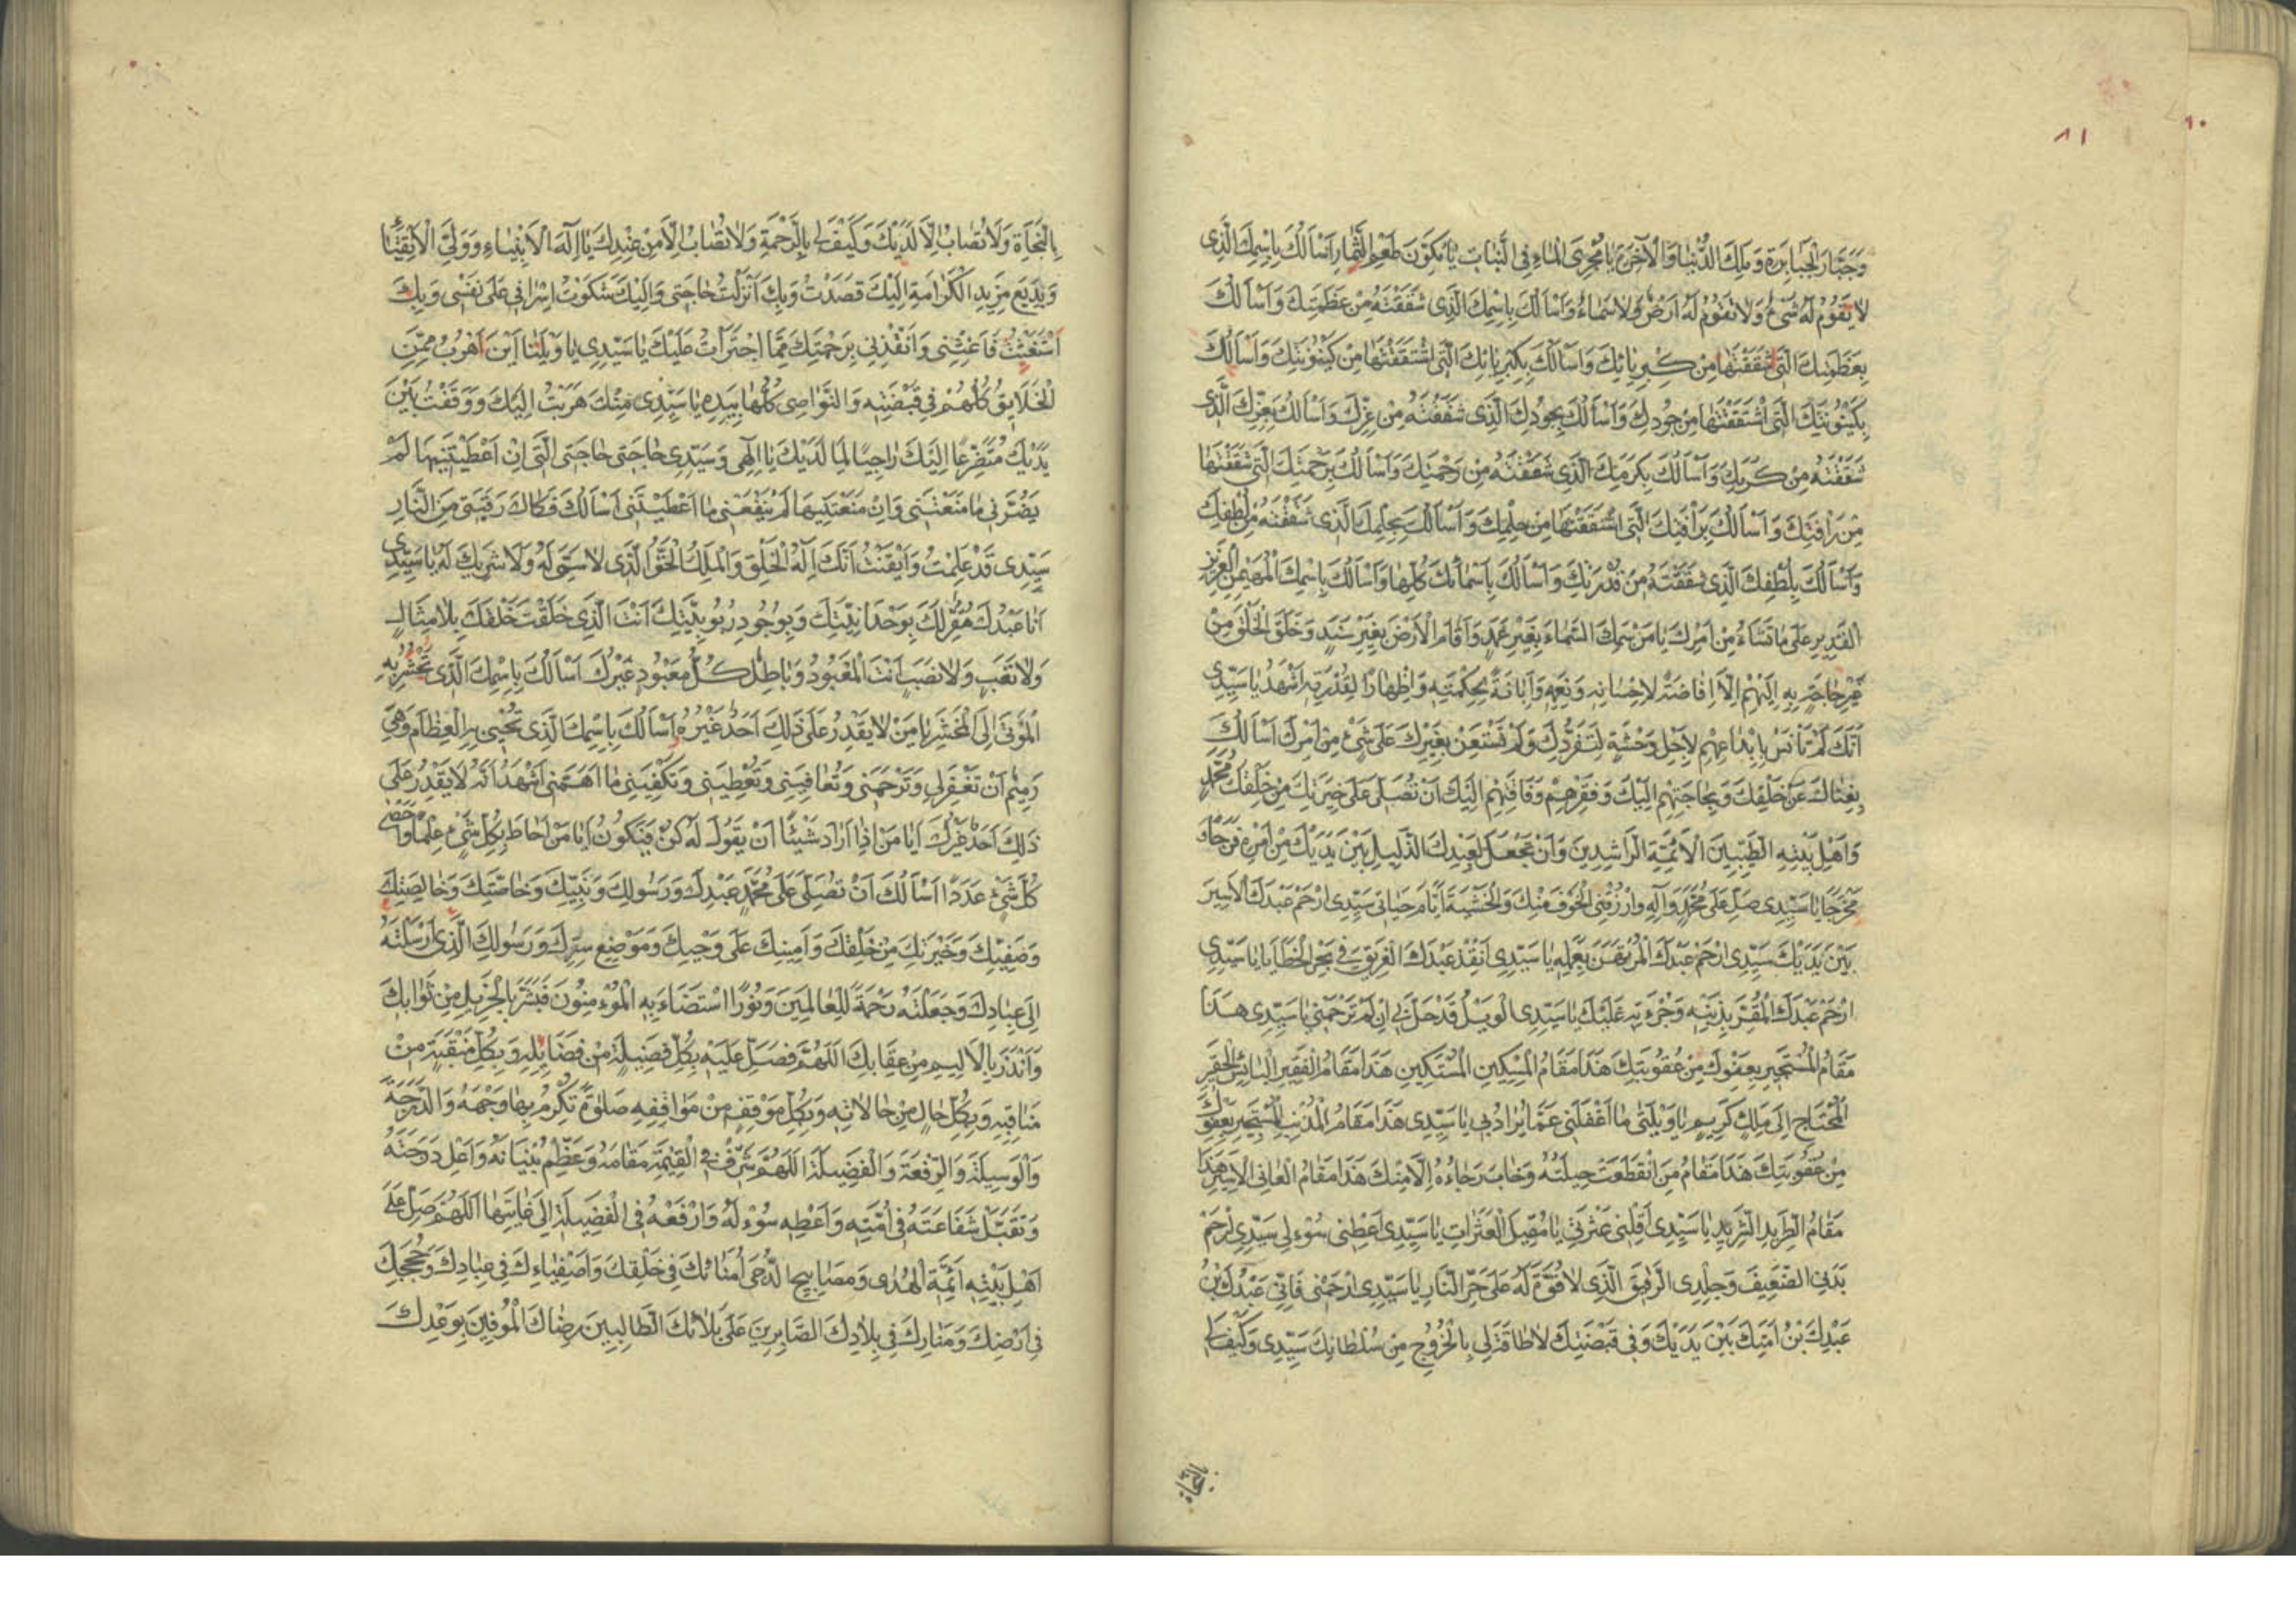 ١١
١٠
وَجَبَّارَ الْجَبَابِرَةِ وَمَلِكَ الدُّنْيَا وَالْآخِرَةِ يَا مُجْرِيَ الْمَاءِ فِي النَّبَاتِ يَا مُكَوِّنَ طَعْمِ الثِّمَارِ اَسْاَلُكَ بِاسْمِكَ الَّذِي
لَا يَقُومُ لَهُ شَيْءٌ وَلَا تَقُومُ لَهُ اَرْضٌ وَلَا سَمَاءٌ وَاَسْاَلُكَ بِاسْمِكَ الَّذِي شَقَقْتَهُ مِنْ عَظَمَتِكَ وَاَسْاَلُكَ
بِعَظَمَتِكَ الَّتِي شَقَقْتَهَا مِنْ كِبْرِيَائِكَ وَاَسْاَلُكَ بِكِبْرِيَائِكَ الَّتِي اشْتَقَقْتَهَا مِنْ كَيْنُونَتِكَ وَاَسْاَلُكَ
بِكَيْنُونَتِكَ الَّتِي اشْتَقَقْتَهَا مِنْ جُودِكَ وَاَسْاَلُكَ بِجُودِكَ الَّذِي شَقَقْتَهُ مِنْ عِزِّكَ وَاَسْاَلُكَ بِعِزِّكَ الَّذِي
شَقَقْتَهُ مِنْ كَرَمِكَ وَاَسْاَلُكَ بِكَرَمِكَ الَّذِي شَقَقْتَهُ مِنْ رَحْمَتِكَ وَاَسْاَلُكَ بِرَحْمَتِكَ الَّتِي شَقَقْتَهَا
مِنْ رَاْفَتِكَ وَاَسْاَلُكَ بِرَاْفَتِكَ الَّتِي اشْتَقَقْتَهَا مِنْ حِلْمِكَ وَاَسْاَلُكَ بِحِلْمِكَ الَّذِي شَقَقْتَهُ مِنْ لُطْفِكَ
وَاَسْاَلُكَ بِلُطْفِكَ الَّذِي شَقَقْتَهُ مِنْ قُدْرَتِكَ وَاَسْاَلُكَ بِاَسْمَائِكَ كُلِّهَا وَاَسْاَلُكَ بِاسْمِكَ الْمُهَيْمِنِ الْعَزِيزِ
الْقَدِيرِ عَلَى مَا تَشَاءُ مِنْ اَمْرِكَ يَا مَنْ سَمَكَ السَّمَاءَ بِغَيْرِ عَمَدٍ وَاَقَامَ الْاَرْضَ بِغَيْرِ سَنَدٍ وَخَلَقَ الْخَلْقَ مِنْ
غَيْرِ حَاجَةٍ بِهِ اِلَيْهِمْ اِلَّا اِفَاضَةً لِاِحْسَانِهِ وَنِعَمِهِ وَاِبَانَةً لِحِكْمَتِهِ وَاِظْهَارًا لِقُدْرَتِهِ اَشْهَدُ يَا سَيِّدِي
اَنَّكَ لَمْ تَاْنَسْ بِاِبْدَاعِهِمْ لِاَجْلِ وَحْشَةٍ لِتَفَرُّدِكَ وَلَمْ تَسْتَعِنْ بِغَيْرِكَ عَلَى شَيْءٍ مِنْ اَمْرِكَ اَسْاَلُكَ
بِغِنَاكَ عَنْ خَلْقِكَ وَبِحَاجَتِهِمْ اِلَيْكَ وَفَقْرِهِمْ وَفَاقَتِهِمْ اِلَيْكَ اَنْ تُصَلِّيَ عَلَى خِيَرَتِكَ مِنْ خَلْقِكَ مُحَمَّدٍ
وَاَهْلِ بَيْتِهِ الطَّيِّبِينَ الْاَئِمَّةِ الرَّاشِدِينَ وَاَنْ تَجْعَلَ لِعَبْدِكَ الذَّلِيلِ بَيْنَ يَدَيْكَ مِنْ اَمْرِهِ فَرَجًا وَ
مَخْرَجًا يَا سَيِّدِي صَلِّ عَلَى مُحَمَّدٍ وَآلِهِ وَارْزُقْنِي الْخَوْفَ مِنْكَ وَالْخَشْيَةَ اَيَّامَ حَيَاتِي سَيِّدِي ارْحَمْ عَبْدَكَ الْاَسِيرَ
بَيْنَ يَدَيْكَ سَيِّدِي ارْحَمْ عَبْدَكَ الْمُرْتَهَنَ بِعَمَلِهِ يَا سَيِّدِي اَنْقِذْ عَبْدَكَ الْغَرِيقَ فِي بَحْرِ الْخَطَايَا يَا سَيِّدِي
ارْحَمْ عَبْدَكَ الْمُقِرَّ بِذَنْبِهِ وَجُرْءَتِهِ عَلَيْكَ يَا سَيِّدِي الْوَيْلُ قَدْ حَلَّ بِي اِنْ لَمْ تَرْحَمْنِي يَا سَيِّدِي هَذَا
مَقَامُ الْمُسْتَجِيرِ بِعَفْوِكَ مِنْ عُقُوبَتِكَ هَذَا مَقَامُ الْمِسْكِينِ الْمُسْتَكِينِ هَذَا مَقَامُ الْفَقِيرِ الْبَائِسِ الْحَقِيرِ
الْمُحْتَاجِ اِلَى مَلِكٍ كَرِيمٍ يَا وَيْلَتَى مَا اَغْفَلَنِي عَمَّا يُرَادُ بِي يَا سَيِّدِي هَذَا مَقَامُ الْمُذْنِبِ الْمُسْتَجِيرِ بِعَفْوِكَ
مِنْ عُقُوبَتِكَ هَذَا مَقَامُ مَنِ انْقَطَعَتْ حِيلَتُهُ وَخَابَ رَجَاءُهُ اِلَّا مِنْكَ هَذَا مَقَامُ الْعَانِي الْاَسِيرِ هَذَا
مَقَامُ الطَّرِيدِ الشَّرِيدِ يَا سَيِّدِي اَقِلْنِي عَثْرَتِي يَا مُقِيلَ الْعَثَرَاتِ يَا سَيِّدِي اَعْطِنِي سُؤْلِي سَيِّدِي ارْحَمْ
بَدَنِي الضَّعِيفَ وَجِلْدِي الرَّقِيقَ الَّذِي لَا قُوَّةَ لَهُ عَلَى حَرِّ النَّارِ يَا سَيِّدِي ارْحَمْنِي فَاِنِّي عَبْدُكَ بْنُ
عَبْدِكَ بْنُ اَمَتِكَ بَيْنَ يَدَيْكَ وَفِي قَبْضَتِكَ لَا طَاقَةَ لِي بِالْخُرُوجِ مِنْ سُلْطَانِكَ سَيِّدِي وَكَيْفَ لِي
بِالنَّجَاةِ وَلَا تُصَابُ اِلَّا لَدَيْكَ وَكَيْفَ لِي بِالرَّحْمَةِ وَلَا تُصَابُ اِلَّا مِنْ عِنْدِكَ يَا اِلَهَ الْاَنْبِيَاءِ وَوَلِيَّ الْاَتْقِيَاءِ
وَبَدِيعَ مَزِيدِ الْكَرَامَةِ اِلَيْكَ قَصَدْتُ وَبِكَ اَنْزَلْتُ حَاجَتِي وَاِلَيْكَ شَكَوْتُ اِسْرَافِي عَلَى نَفْسِي وَبِكَ
اَسْتَغَثْتُ فَاَغِثْنِي وَاَنْقِذْنِي بِرَحْمَتِكَ مِمَّا اجْتَرَاْتُ عَلَيْكَ يَا سَيِّدِي يَا وَيْلَتَا اَيْنَ اَهْرُبُ مِمَّنِ
الْخَلَايِقُ كُلُّهُمْ فِي قَبْضَتِهِ وَالنَّوَاصِي كُلُّهَا بِيَدِهِ يَا سَيِّدِي مِنْكَ هَرَبْتُ اِلَيْكَ وَوَقَفْتُ بَيْنَ
يَدَيْكَ مُتَضَرِّعًا اِلَيْكَ رَاجِيًا لِمَا لَدَيْكَ يَا اِلَهِي وَسَيِّدِي حَاجَتِي حَاجَتِي الَّتِي اِنْ اَعْطَيْتَنِيهَا لَمْ
يَضُرَّنِي مَا مَنَعْتَنِي وَاِنْ مَنَعْتَنِيهَا لَمْ يَنْفَعْنِي مَا اَعْطَيْتَنِي اَسْاَلُكَ فَكَاكَ رَقَبَتِي مِنَ النَّارِ
سَيِّدِي قَدْ عَلِمْتُ وَاَيْقَنْتُ اَنَّكَ اِلَهُ الْخَلْقِ وَالْمَلِكُ الْحَقُّ الَّذِي لَا سَمِيَّ لَهُ وَلَا شَرِيكَ لَهُ يَا سَيِّدِي
اَنَا عَبْدُكَ مُقِرٌّ لَكَ بِوَحْدَانِيَّتِكَ وَبِوُجُودِ رُبُوبِيَّتِكَ اَنْتَ الَّذِي خَلَقْتَ خَلْقَكَ بِلَا مِثَالٍ
وَلَا تَعَبٍ وَلَا نَصَبٍ اَنْتَ الْمَعْبُودُ وَبَاطِلٌ كُلُّ مَعْبُودٍ غَيْرُكَ اَسْاَلُكَ بِاسْمِكَ الَّذِي تَحْشُرُ بِهِ
الْمَوْتَى اِلَى الْمَحْشَرِ يَا مَنْ لَا يَقْدِرُ عَلَى ذَلِكَ اَحَدٌ غَيْرُهُ اَسْاَلُكَ بِاسْمِكَ الَّذِي تُحْيِي بِهِ الْعِظَامَ وَهِيَ
رَمِيمٌ اَنْ تَغْفِرَ لِي وَتَرْحَمَنِي وَتُعَافِيَنِي وَتُعْطِيَنِي وَتَكْفِيَنِي مَا اَهَمَّنِي اَشْهَدُ اَنَّهُ لَا يَقْدِرُ عَلَى
ذَلِكَ اَحَدٌ غَيْرُكَ اَيَا مَنْ اِذَا اَرَادَ شَيْئًا اَنْ يَقُولَ لَهُ كُنْ فَيَكُونُ اَيَا مَنْ اَحَاطَ بِكُلِّ شَيْءٍ عِلْمًا وَاَحْصَى
كُلَّ شَيْءٍ عَدَدًا اَسْاَلُكَ اَنْ تُصَلِّيَ عَلَى مُحَمَّدٍ عَبْدِكَ وَرَسُولِكَ وَنَبِيِّكَ وَخَاصَّتِكَ وَخَالِصَتِكَ
وَصَفِيِّكَ وَخِيَرَتِكَ مِنْ خَلْقِكَ وَاَمِينِكَ عَلَى وَحْيِكَ وَمَوْضِعِ سِرِّكَ وَرَسُولِكَ الَّذِي اَرْسَلْتَهُ
اِلَى عِبَادِكَ وَجَعَلْتَهُ رَحْمَةً لِلْعَالَمِينَ وَنُورًا اسْتَضَاءَ بِهِ الْمُؤْمِنُونَ فَبَشَّرَ بِالْجَزِيلِ مِنْ ثَوَابِكَ
وَاَنْذَرَ بِالْاَلِيمِ مِنْ عِقَابِكَ اللَّهُمَّ فَصَلِّ عَلَيْهِ بِكُلِّ فَضِيلَةٍ مِنْ فَضَايِلِهِ وَبِكُلِّ مَنْقَبَةٍ مِنْ
مَنَاقِبِهِ وَبِكُلِّ حَالٍ مِنْ حَالَاتِهِ وَبِكُلِّ مَوْقِفٍ مِنْ مَوَاقِفِهِ صَلَوةً تُكْرِمُ بِهَا وَجْهَهُ وَالدَّرَجَةَ
وَالْوَسِيلَةَ وَالرِّفْعَةَ وَالْفَضِيلَةَ اللَّهُمَّ شَرِّفْ فِي الْقِيَمَةِ مَقَامَهُ وَعَظِّمْ بُنْيَانَهُ وَاَعْلِ دَرَجَتَهُ
وَتَقَبَّلْ شَفَاعَتَهُ فِي اُمَّتِهِ وَاَعْطِهِ سُؤْلَهُ وَارْفَعْهُ فِي الْفَضِيلَةِ اِلَى غَايَتِهَا اللَّهُمَّ صَلِّ عَلَى
اَهْلِ بَيْتِهِ اَئِمَّةِ الْهُدَى وَمَصَابِيحِ الدُّجَى اُمَنَائِكَ فِي خَلْقِكَ وَاَصْفِيَاءِكَ فِي عِبَادِكَ وَحُجَجِكَ
فِي اَرْضِكَ وَمَنَارِكَ فِي بِلَادِكَ الصَّابِرِينَ عَلَى بَلَائِكَ الطَّالِبِينَ رِضَاكَ الْمُوفِينَ بِوَعْدِكَ